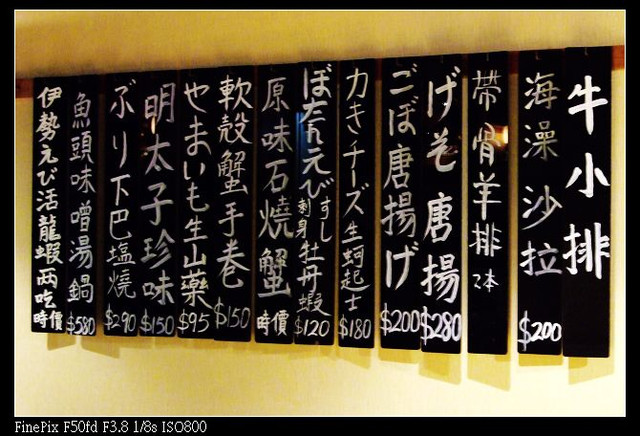 牛小排
海澡沙拉 $200
帶骨羊排 2本
げそ唐揚 $280
ごぼ唐揚げ $200
カきチーズ 生蚵起士 $180
ぼたんえび すし 刺身 牡丹蝦 $120
原味石燒蟹 時價
軟殼蟹手卷 $150
やまいも生山藥 $95
明太子珍味 $150
ぶり下巴塩燒 $290
魚頭味噌湯鍋 $580
伊勢えび活龍蝦兩吃 時價
FinePix F50fd F3.8 1/8s ISO800